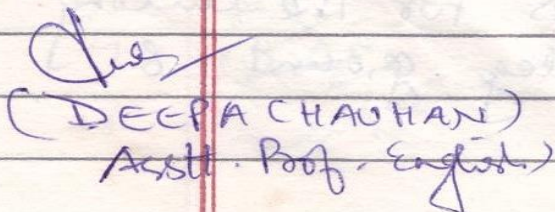 (DEEPA CHAUHAN)
Asstt. Prof. English)